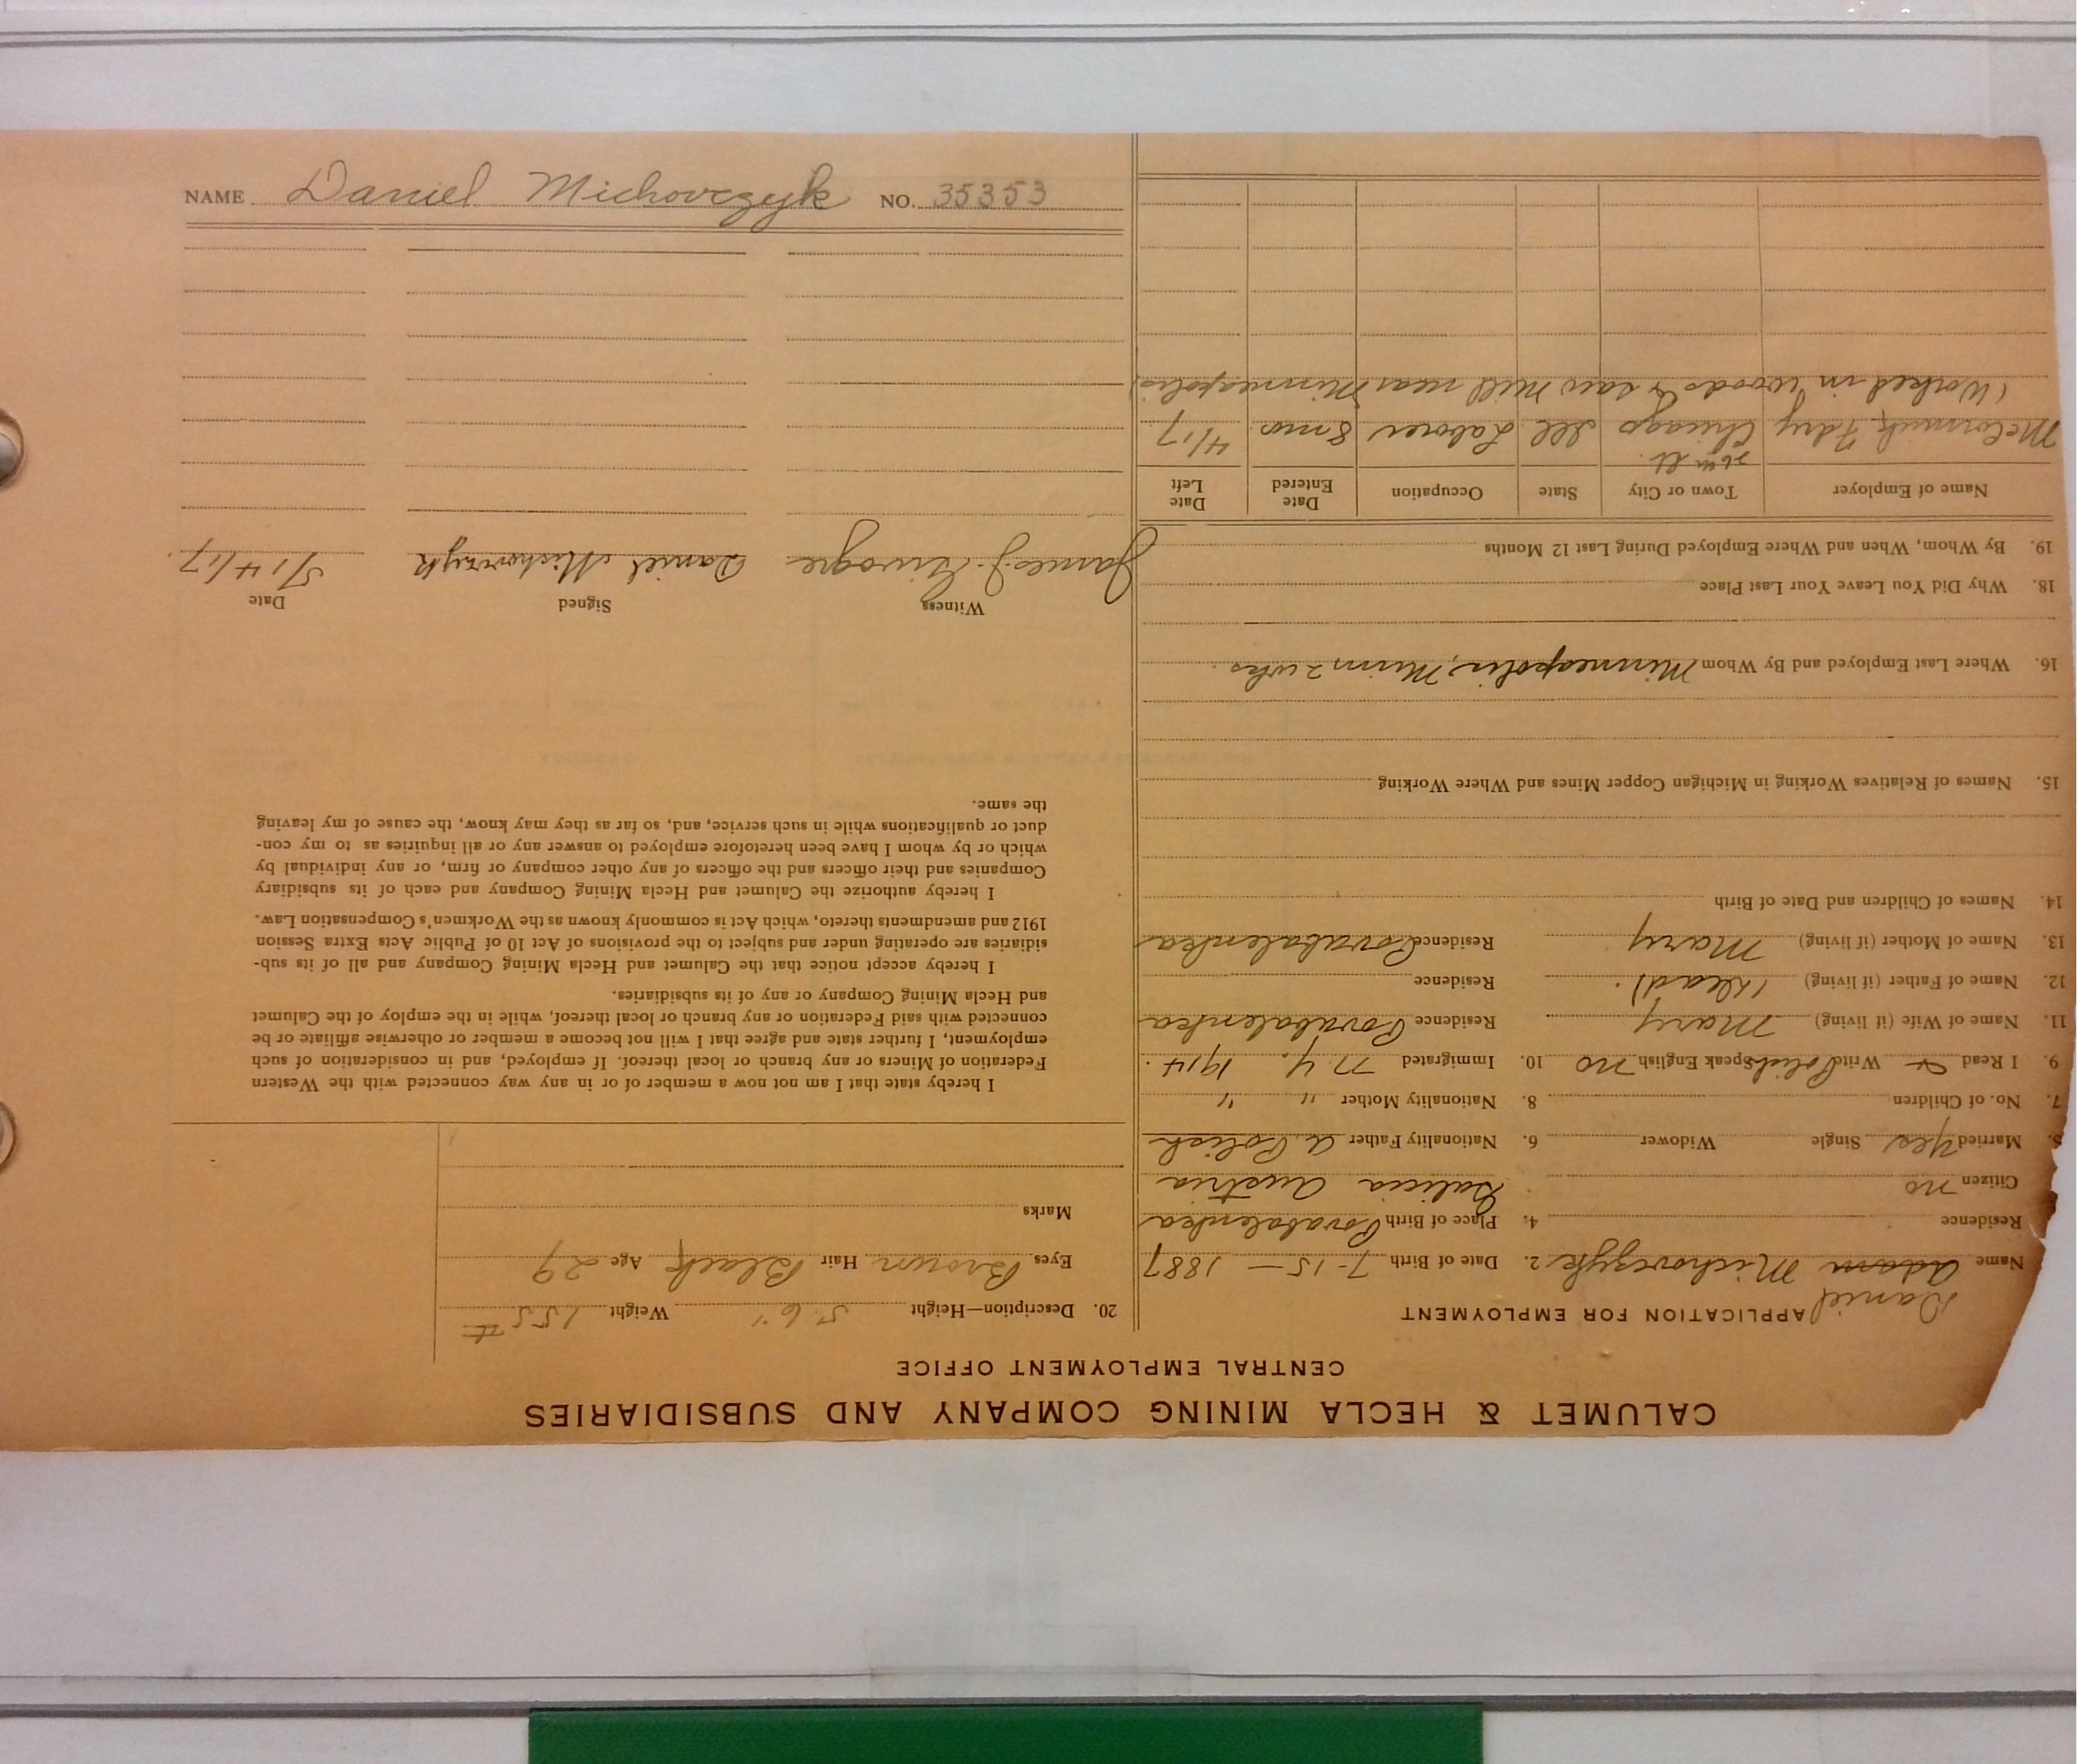 NAME Daniel Michovczyk NO. 35353
CALUMET & HECLA MINING COMPANY AND SUBSIDIARIES
CENTRAL EMPLOYMENT OFFICE
APPLICATION FOR EMPLOYMENT
Daniel
Name Adam Michovczyk 2. Date of Birth 7-15-1887
Residence 4. Place of Birth Povabalenka
Citizen no Galicia Austria
5. Married yes Single Widower 6. Nationality Father A. Polish
7. No. of Children 8. Nationality Mother " "
9. I Read & Write Polish Speak English no 10. Immigrated N.Y. 1914.
11. Name of Wife (if living) Mary Residence Povabalenka
12. Name of Father (if living) (dead). Residence
13. Name of Mother (if living) Mary Residence Povabalenka
14. Names of Children and Date of Birth
15. Names of Relatives Working in Michigan Copper Mines and Where Working
16. Where Last Employed and By Whom Minneapolis, Minn 2 wks.
18. Why Did You Leave Your Last Place
19. By Whom, When and Where Employed During Last 12 Months
Name of Employer Town or City State Occupation Date Entered Date Left
McCormick Fdry Chicago Ill Laborer 8 mos 4/17
(Worked in woods & saw mill near Minneapolis)
20. Description—Height 5' 6" Weight 155#
Eyes Brown Hair Black Age 29
Marks
I hereby state that I am not now a member of or in any way connected with the Western
Federation of Miners or any branch or local thereof. If employed, and in consideration of such
employment, I further state and agree that I will not become a member or otherwise affiliate or be
connected with said Federation or any branch or local thereof, while in the employ of the Calumet
and Hecla Mining Company or any of its subsidiaries.
I hereby accept notice that the Calumet and Hecla Mining Company and all of its sub-
sidiaries are operating under and subject to the provisions of Act 10 of Public Acts Extra Session
1912 and amendments thereto, which Act is commonly known as the Workmen's Compensation Law.
I hereby authorize the Calumet and Hecla Mining Company and each of its subsidiary
Companies and their officers and the officers of any other company or firm, or any individual by
which or by whom I have been heretofore employed to answer any or all inquiries as to my con-
duct or qualifications while in such service, and, so far as they may know, the cause of my leaving
the same.
Witness Signed Date
James J. Daniel Michovczyk 5/14/17.